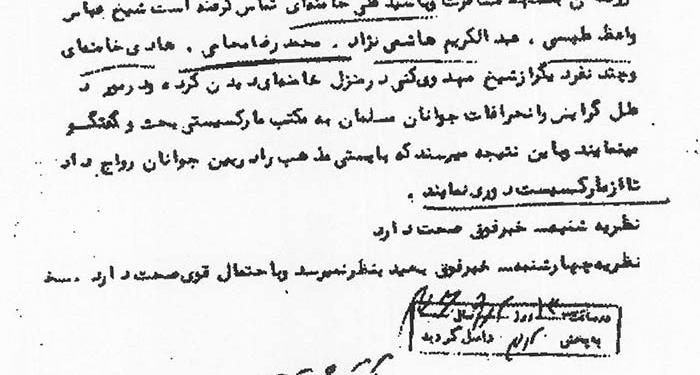 مسافرت وباسید علی خامنه‌ای تماس گرفته است شیخ عباس
واعظ طبسی . عبدالکریم هاشمی نژاد . محمد رضا محامی . هادی خامنه‌ای
وچند نفر دیگر از شیخ مهدوی کنی در منزل خامنه‌ای دیدن کرده ودرمورد
علل گرایش وانحرافات جوانان مسلمان به مکتب مارکسیستی بحث و گفتگو
مینمایند وباین نتیجه میرسند که بایستی مذهب را دربین جوانان رواج داد
تا از مارکسیست دوری نمایند .
نظریه شنبه خبرفوق صحت دارد
نظریه چهارشنبه خبرفوق بعید بنظر نمیرسد وباحتمال قوی صحت دارد .
در ساعت روز سال
به بخش واصل گردید